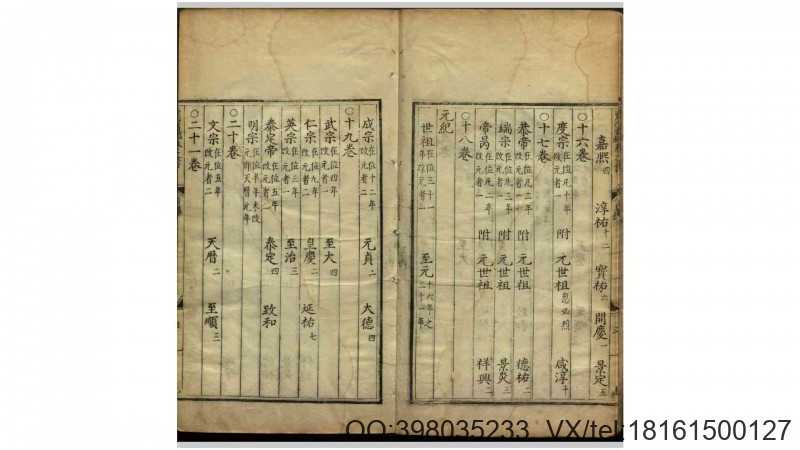 嘉熙四 淳祐十二 寳祐六 開慶一 景定五
○十六卷
度宗在位凡十年改元者一 附 元世祖忽必烈 咸淳十
○十七卷
恭帝在位凡二年改元者一 附 元世祖 德祐二
端宗在位凡三年改元者一 附 元世祖 景炎三
帝昺在位凡二年改元者一 附 元世祖 祥興二
○十八卷
元紀
世祖在位三十一年改元者一 至元十六年之三十一年
成宗在位十二年改元者二 元貞二 大德
○十九卷
武宗在位四年改元者一 至大四
仁宗在位九年改元者二 皇慶二 延祐七
英宗在位三年改元者一 至治三
泰定帝在位五年改元者二 泰定四 致和
明宗在位半年未改元即天曆元年
○二十卷
文宗在位五年改元者二 天曆二 至順三
○二十一卷
QQ:398035233 VX/tel:18161500127